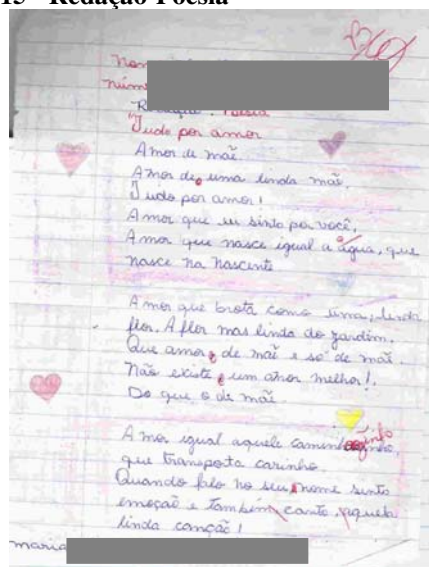 15 - Redação Poesia
Nom
núme
Redação: Poesia
"Tudo por amor
Amor de mãe.
Amor de uma linda mãe,
Tudo por amor!
Amor que eu sinto por você,
Amor que nasce igual a água, que
nasce na nascente
Amor que brota como uma, linda
flor. A flor mas linda do jardim.
Que amor, de mãe e só de mãe.
Não existe um amor melhor!.
Do que o de mãe.
Amor igual aquele caminhozinho,
que transporta carinho.
Quando falo no seu nome sinto
emoção e também canto, aquela
linda canção!
maria